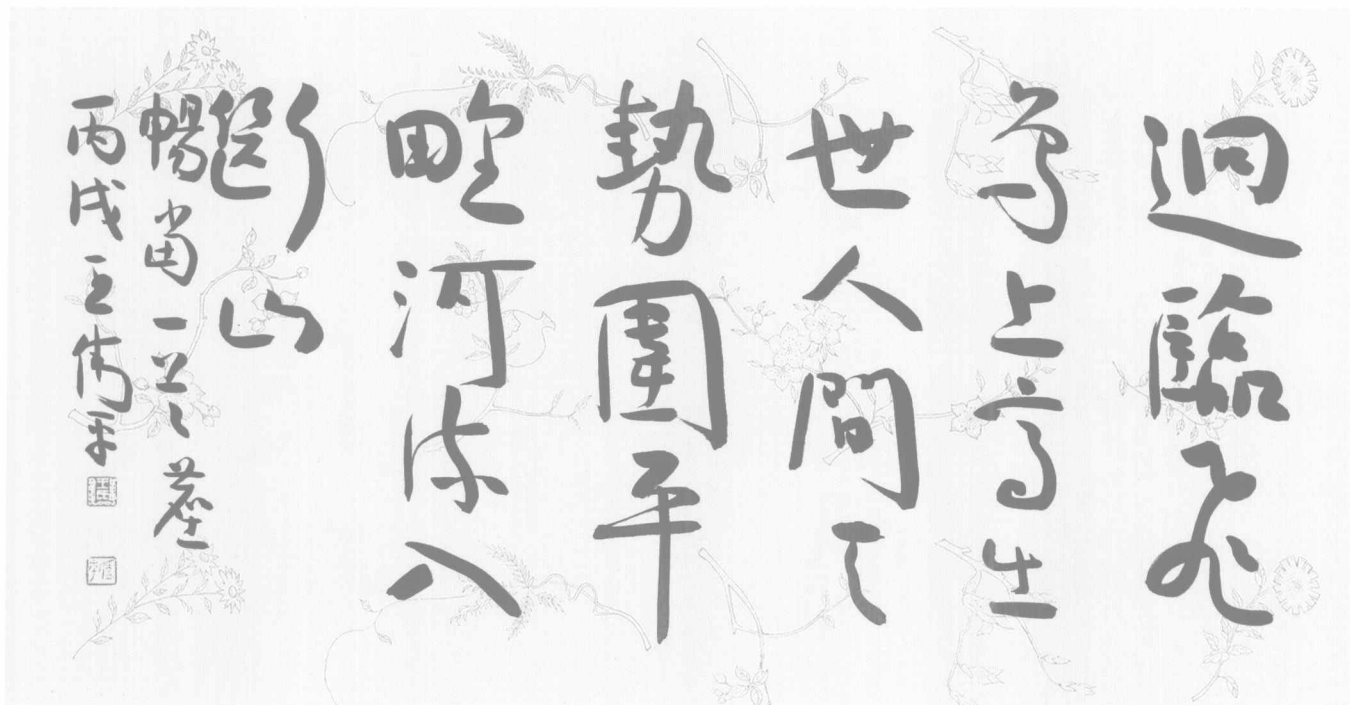 迥臨飛
鳥上高出
世人間天
勢圍平
野河流入
斷山
暢當一塵
丙戌王偉平